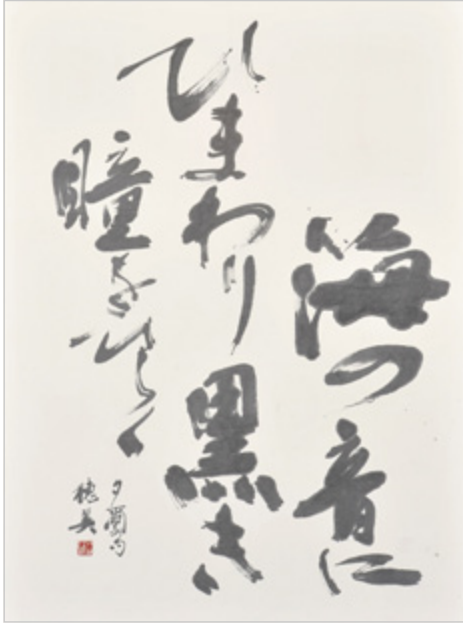 海の音に
ひまわり黒き
瞳をひらく
夕爾句